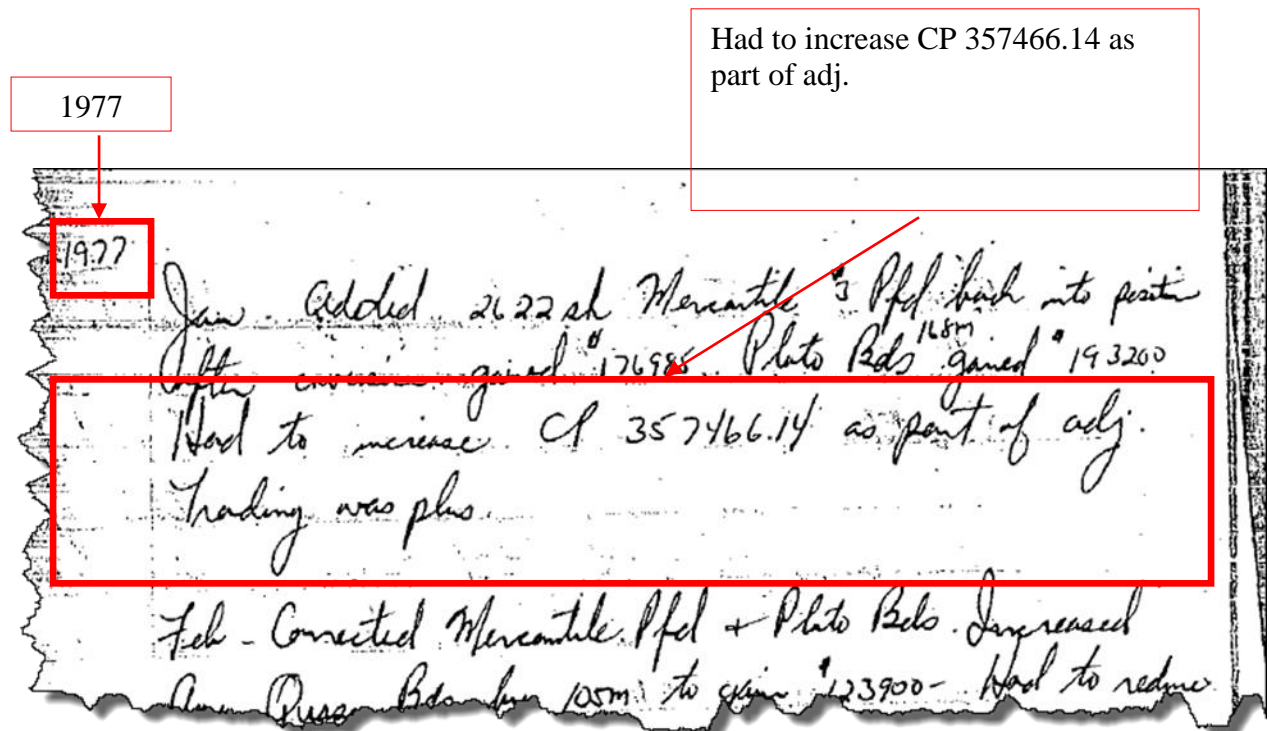 Had to increase CP 357466.14 as
part of adj.
1977
1977
Jan - Added 2622 sh Mercantile $3 Pfd back into position
after gained $176985 Plato Bds 168m gained $193200
Had to increase CP 357466.14 as part of adj.
Trading was plus.
Feb - Corrected Mercantile Pfd + Plato Bds. Increased
Bds by 105m to gain $123900- Had to reduce